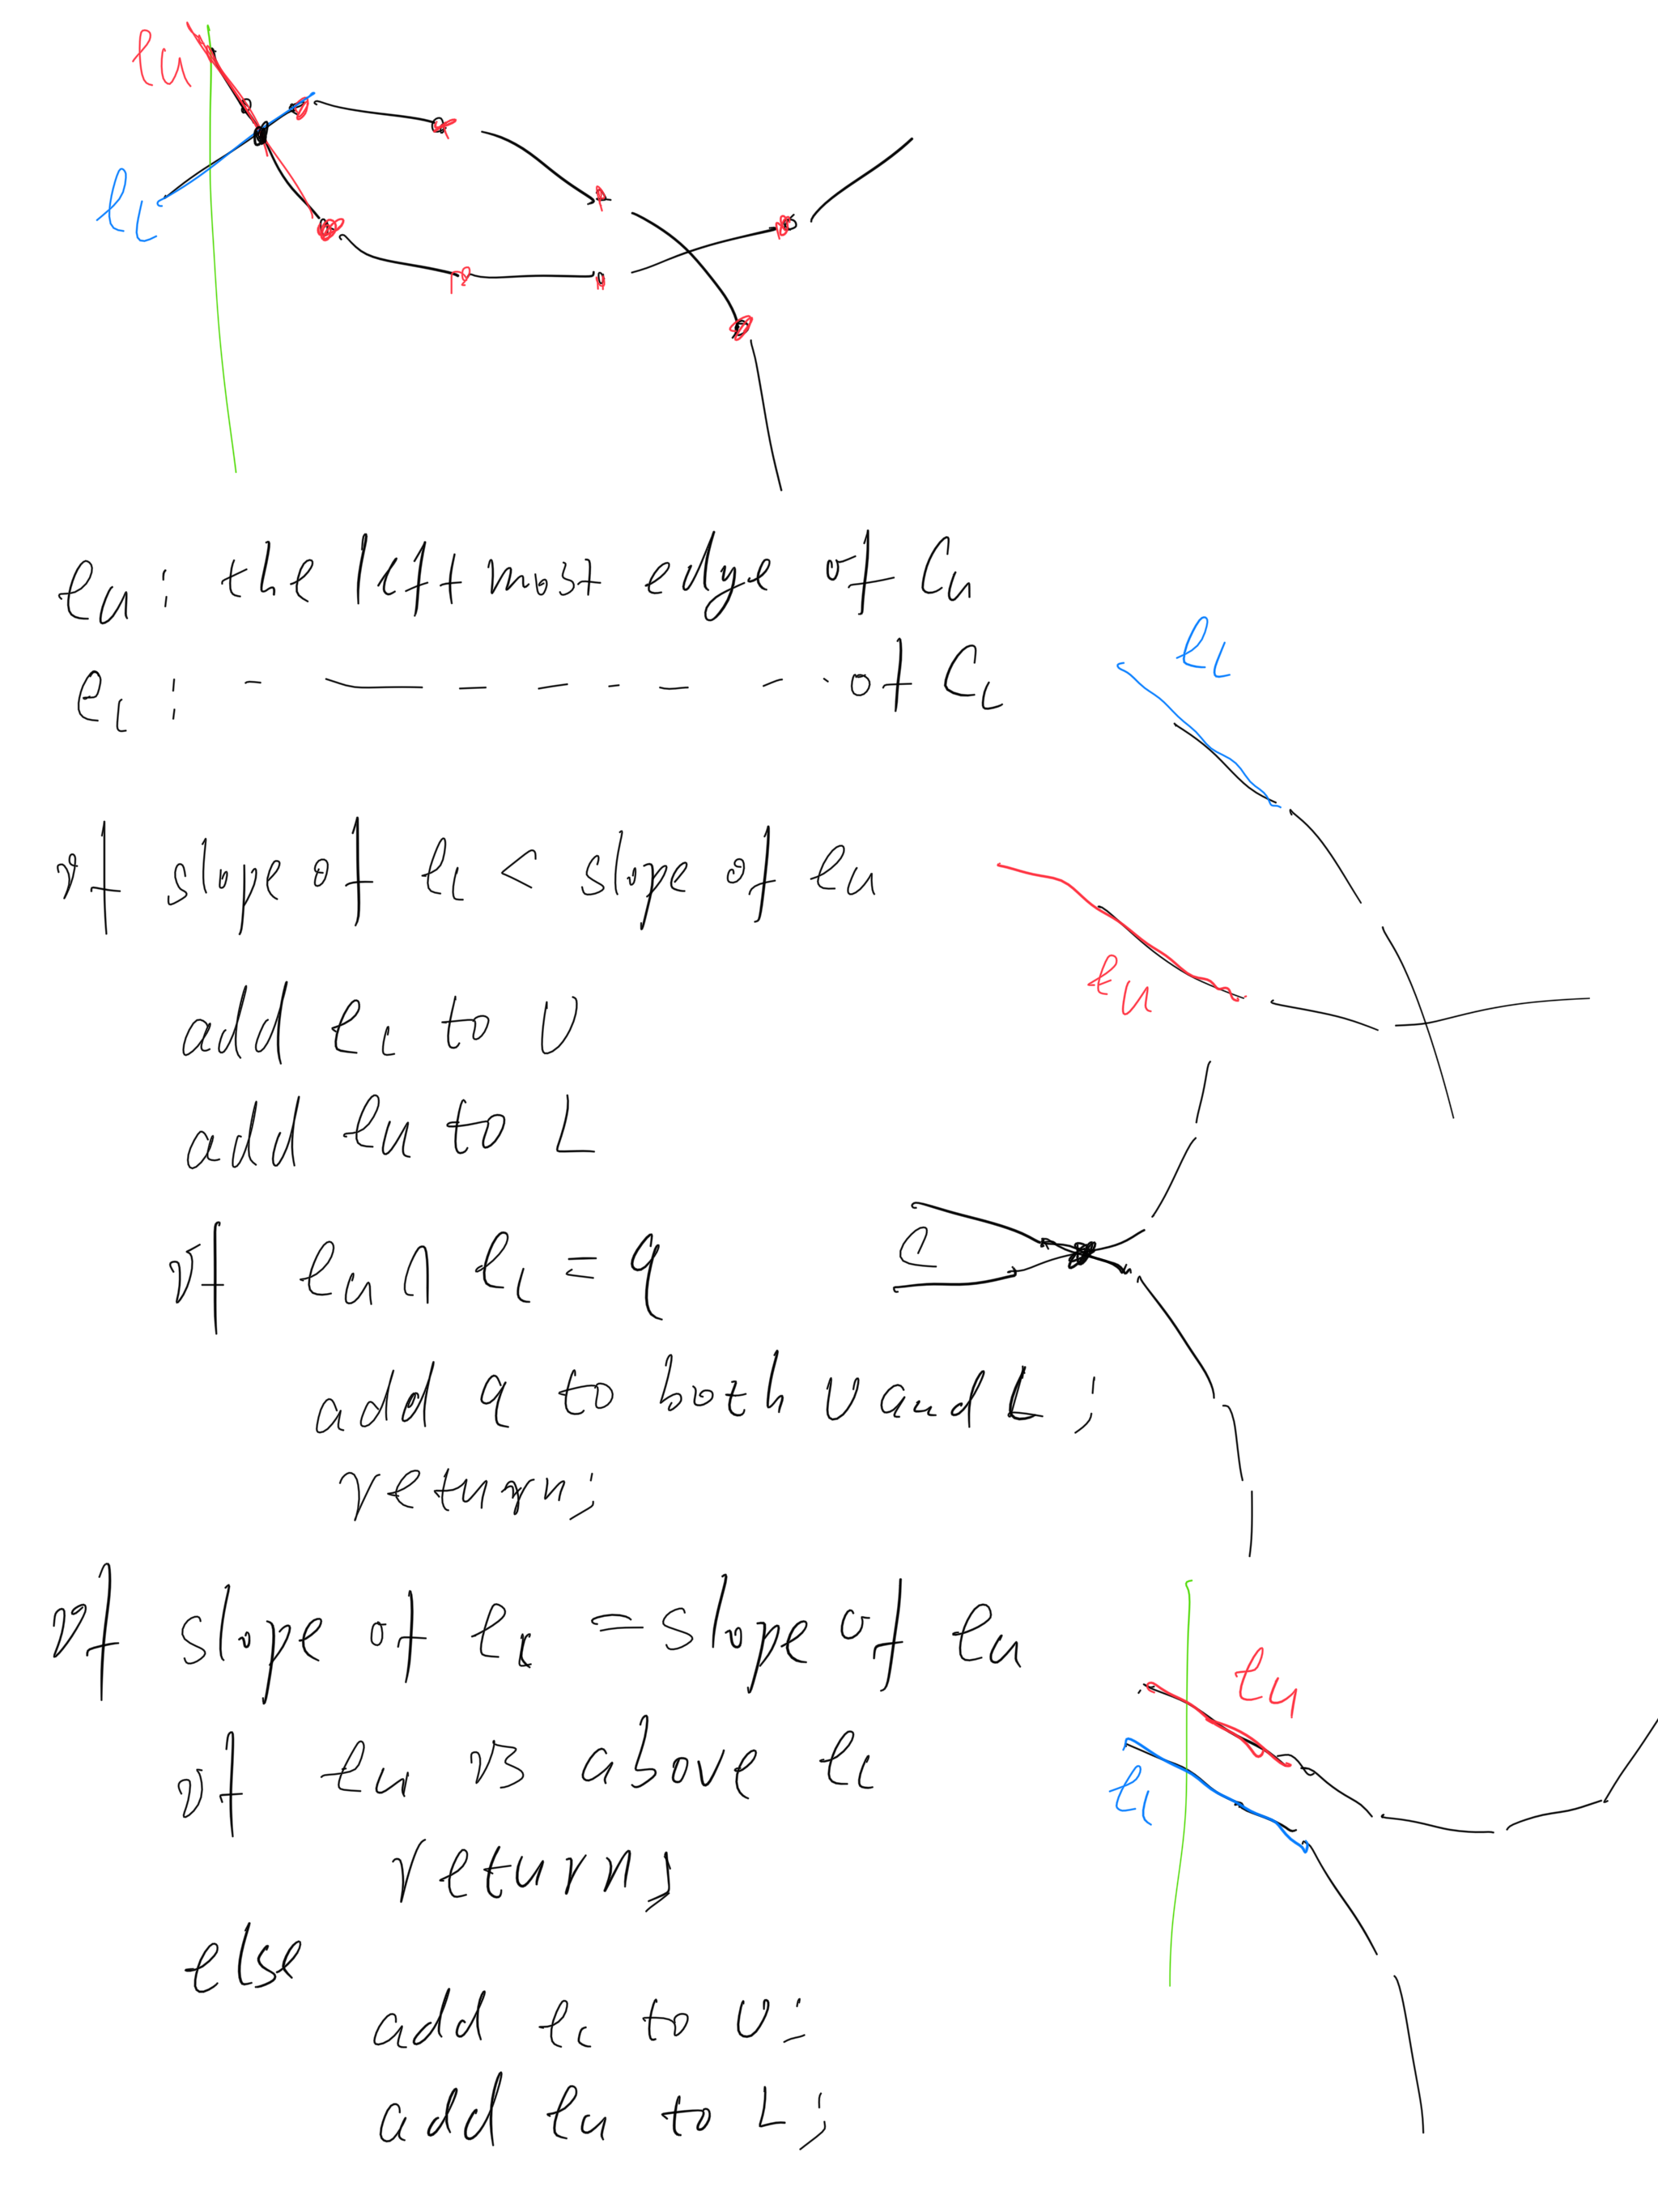 eu
eL
eu : the left most edge of Cu
eL : - — - - - - - - of CL
eL
if slope of eL < slope of eu
eu
add eL to U
add eu to L
if eu ∩ eL = q
add q to both U and L ;
return ;
if slope of eL = slope of eu
eu
if eu is above eL
eL
return ;
else
add eL to U ;
add eu to L ;